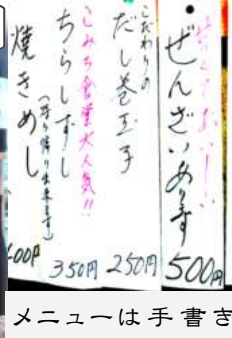 甘くておいしい
ぜんざいあります
500円
こだわりの
だし巻玉子
250円
こみち食堂大人気!!
ちらしずし
(持ち帰り出来ます)
350円
焼きめし
400円
メニューは手書き